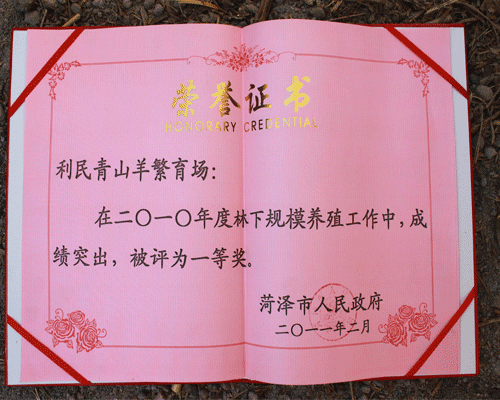 荣誉证书
HONORARY CREDENTIAL
利民青山羊繁育场：
在二〇一〇年度林下规模养殖工作中，成
绩突出，被评为一等奖。
菏泽市人民政府
二〇一一年二月